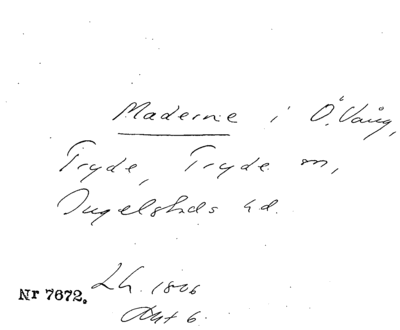 Maderne i Ö. Vång,
Tryde, Tryde sn,
Ingelstads hd.
Lh. 1806
Akt 6.
Nr 7672.